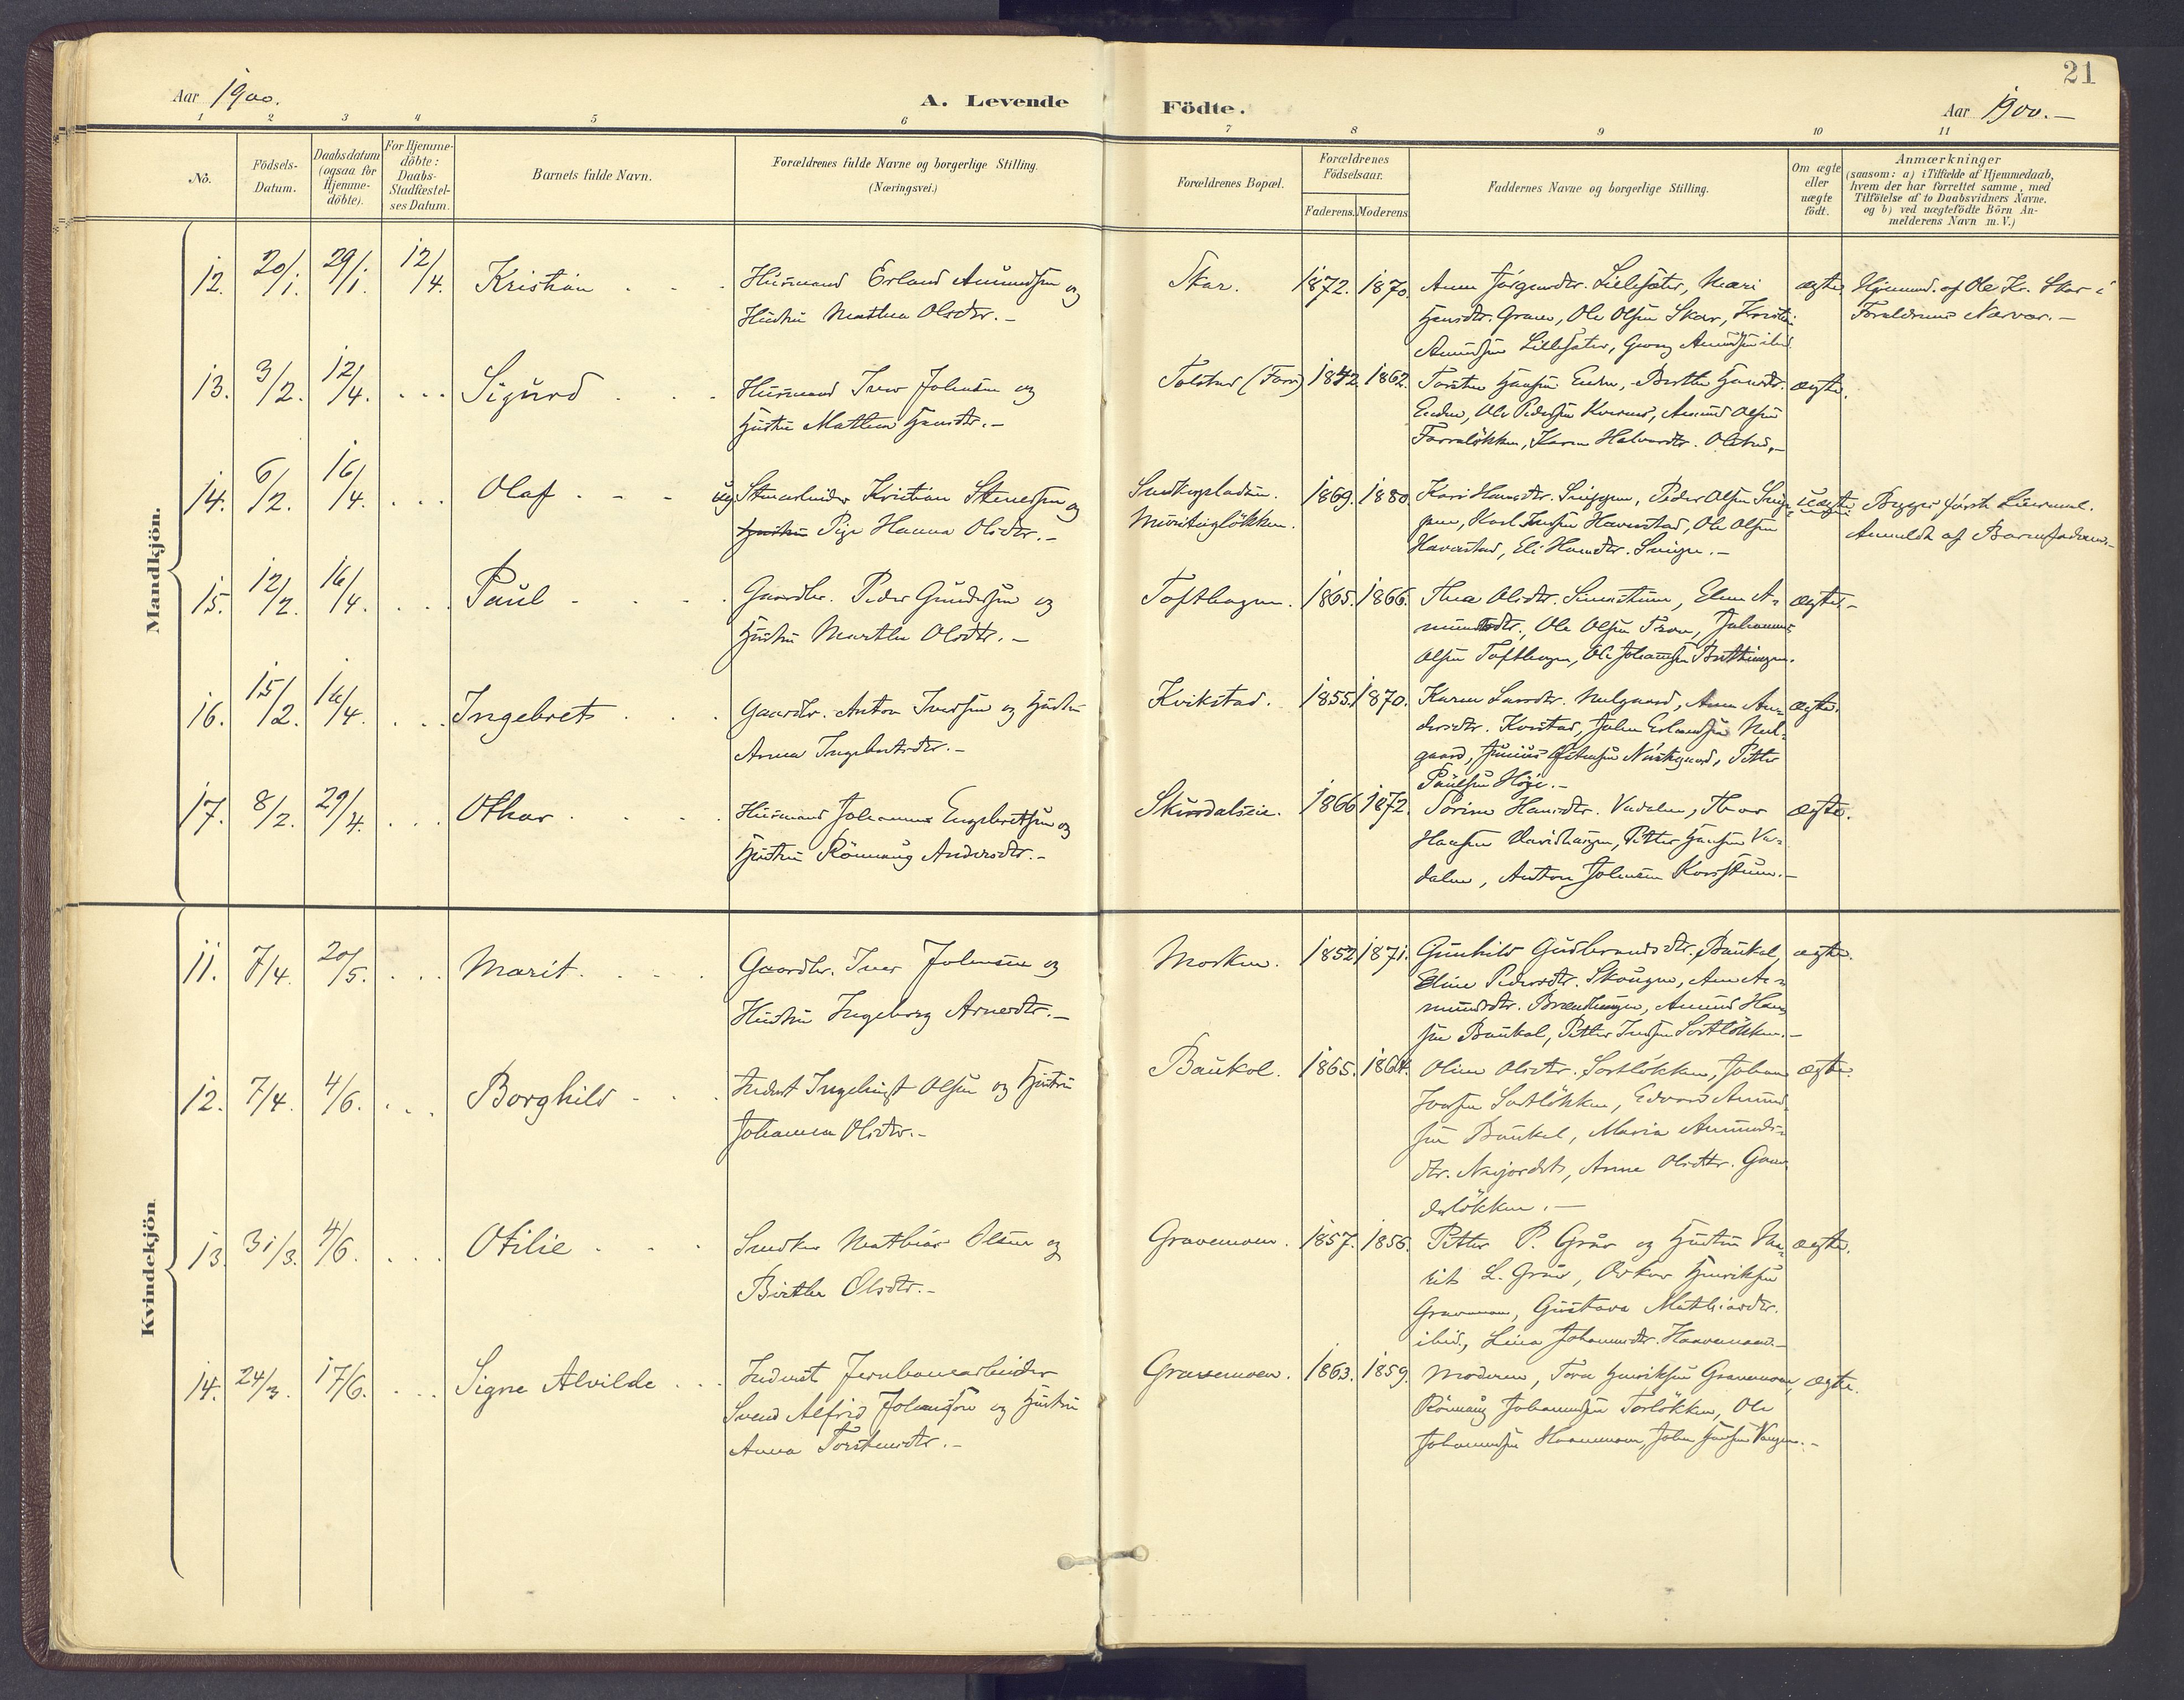 21
Aar 1900.
A. Levende Födte.
Aar 1900.—
1 2 3 4 5 6 7 8 9 10 11
No.
Födsels-
Datum.
Daabsdatum
(ogsaa for
Hjemme-
döbte).
For Hjemme-
döbte:
Daabs-
Stadfæstel-
ses Datum.
Barnets fulde Navn.
Forældrenes fulde Navne og borgerlige Stilling.
(Næringsvei.)
Forældrenes Bopæl.
Forældrenes
Födselsaar.
Faderens. Moderens.
Faddernes Navne og borgerlige Stilling.
Om ægte
eller
uægte
födt.
Anmærkninger
(saasom: a) i Tilfælde af Hjemmedaab,
hvem der har forrettet samme, med
Tilföielse af to Daabsvidners Navne.
og b) ved uægtefödte Börn An-
melderens Navn m. V.)
Mandkjön.
12. 20/1. 29/1. 12/4. Kristian . . .
Husmand Erland Amundsen og
Hustru Mathea Olsdtr.—
Skar. 1872. 1870.
Anne Jörgensdtr. Lillesæter, Mari
Hansdtr. Graven, Ole Olsen Skar, Kristian
Amundsen Lillesæter, Georg Amundsen ibid.
ægte.
Hjemmed. af Ole Kr. Skar i
Forældrenes Nærvær.—
13. 3/2. 12/4. . . . Sigurd . . .
Husmand Iver Johnsen og
Hustru Mathea Hansdtr.—
Tolstad (Form) 1872 1862.
Torsten Hansen Enden, Berthe Hansdtr.
Enden, Ole Pedersen Kvernes, Amund Olsen
Farralökken, Karen Halvordtr. Olstad.—
ægte.
14. 6/2. 16/4. . . . Olaf . - -
ug. Stenarbeider Kristian Stenersen og
Hustru Pige Hanna Olsdtr.—
1869. 1880.
Kari Hansdtr. , Peder Olsen
Karl Havrstad, Ole Olsen
Havrstad, Eli Hansdtr. —
uægte
Begges förste Leiermaal.
Anmeldt af Barnefaderen.—
15. 12/2. 16/4. . . . Paul - . . .
Gaardbr. Peder Gundersen og
Hustru Marthe Olsdtr.—
Tofthagen. 1865. 1866.
Thea Olsdtr. , Elen A-
mundsdtr., Ole Olsen , Johannes
Olsen Tofthagen, Ole Johansen
ægte.—
16. 15/2. 16/4. . . . Ingebret . . .
Gaardbr. Anton Iversen og Hustru
Anna Ingebretsdtr.—
Kvikstad. 1855. 1870.
Karen Larsdtr. Melgaard, Anne An-
dersdtr. Kvistad, John Erlandsen Mel-
gaard, Junius Nistegaard, Petter
Paulsen Höge.—
ægte.
17. 8/2. 29/4. . . . Othar . . .
Husmand Johannes Engebretsen og
Hustru Rönnaug Andersdtr.—
Skurdalseie. 1866 1872.
Sörine Hansdtr. Vadalen, Thor
Hansen , Petter Hansen Va-
dalen, Anton Johnsen .—
ægte.
Kvindekjön.
11. 7/4. 20/5. . . . Marit . . . .
Gaardbr. Iver Johnsen og
Hustru Ingeborg Arnesdtr.—
Morken. 1852. 1871.
Gunhild Gudbrandsdtr. Baukol,
Eline Pedersdtr. Skougen, Anne A-
mundsdtr. Brændhaugen, Amund Han-
sen Baukol, Petter Iversen Sortlökken.—
ægte.
12. 7/4. 4/6. . . . Borghild - . .
Inderst Ingebrigt Olsen og Hustru
Johanna Olsdtr.—
Baukol. 1865. 1864.
Oline Olsdtr. Sortlökken, Johan
Iversen Sortlökken, Edvard Amund-
sen Baukol, Maria Amunds-
dtr. Nyjordet, Anne Olsdtr.
ægte.
13. 31/3. 4/6. . . . Otilie . . .
Snedker Mathias Olsen og
Berthe Olsdtr.—
Gravemoen. 1857. 1856.
Petter P. Grav og Hustru Ma-
rit L. Grav, Oskar Henriksen
Gravemoen, Gustava Mathiasdtr.
ibid., Lina Johannesdtr.
ægte.
14. 24/3. 17/6. . . . Signe Alvilde . . .
Inderst Jernbanearbeider
Svend Alfrid Johansson og Hustru
Anna Torstensdtr.—
Gravemoen. 1863. 1859.
Moderen, Tora Henriksen Gravemoen,
Rönnaug Johannesen Torlökken, Ole
Johannesen , John Hansen Vangen.—
ægte.